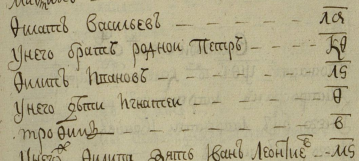 Филатъ Васильевъ — — — — — ла
У него братъ родной Петръ — — — — кѳ
Филипъ Ивановъ — — — — — лѕ
У него дѣти Игнатеи — — — — ѳ
трофимъ — — — — — в
У него Филипа зять Иванъ Леонтиевъ — — мѕ